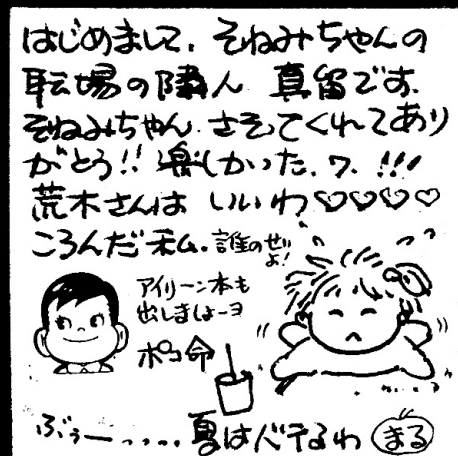 はじめまして、そねみちゃんの
職場の隣人 真留です。
そねみちゃん、さそってくれてあり
がとう!! 楽しかった、ワ、!!!
荒木さんは いいわ♡♡♡♡
ころんだ私。誰のせいよ!
アイリーン本も
出しましょーヨ
ポコ命
ぶぅー……夏はバテるわ まる